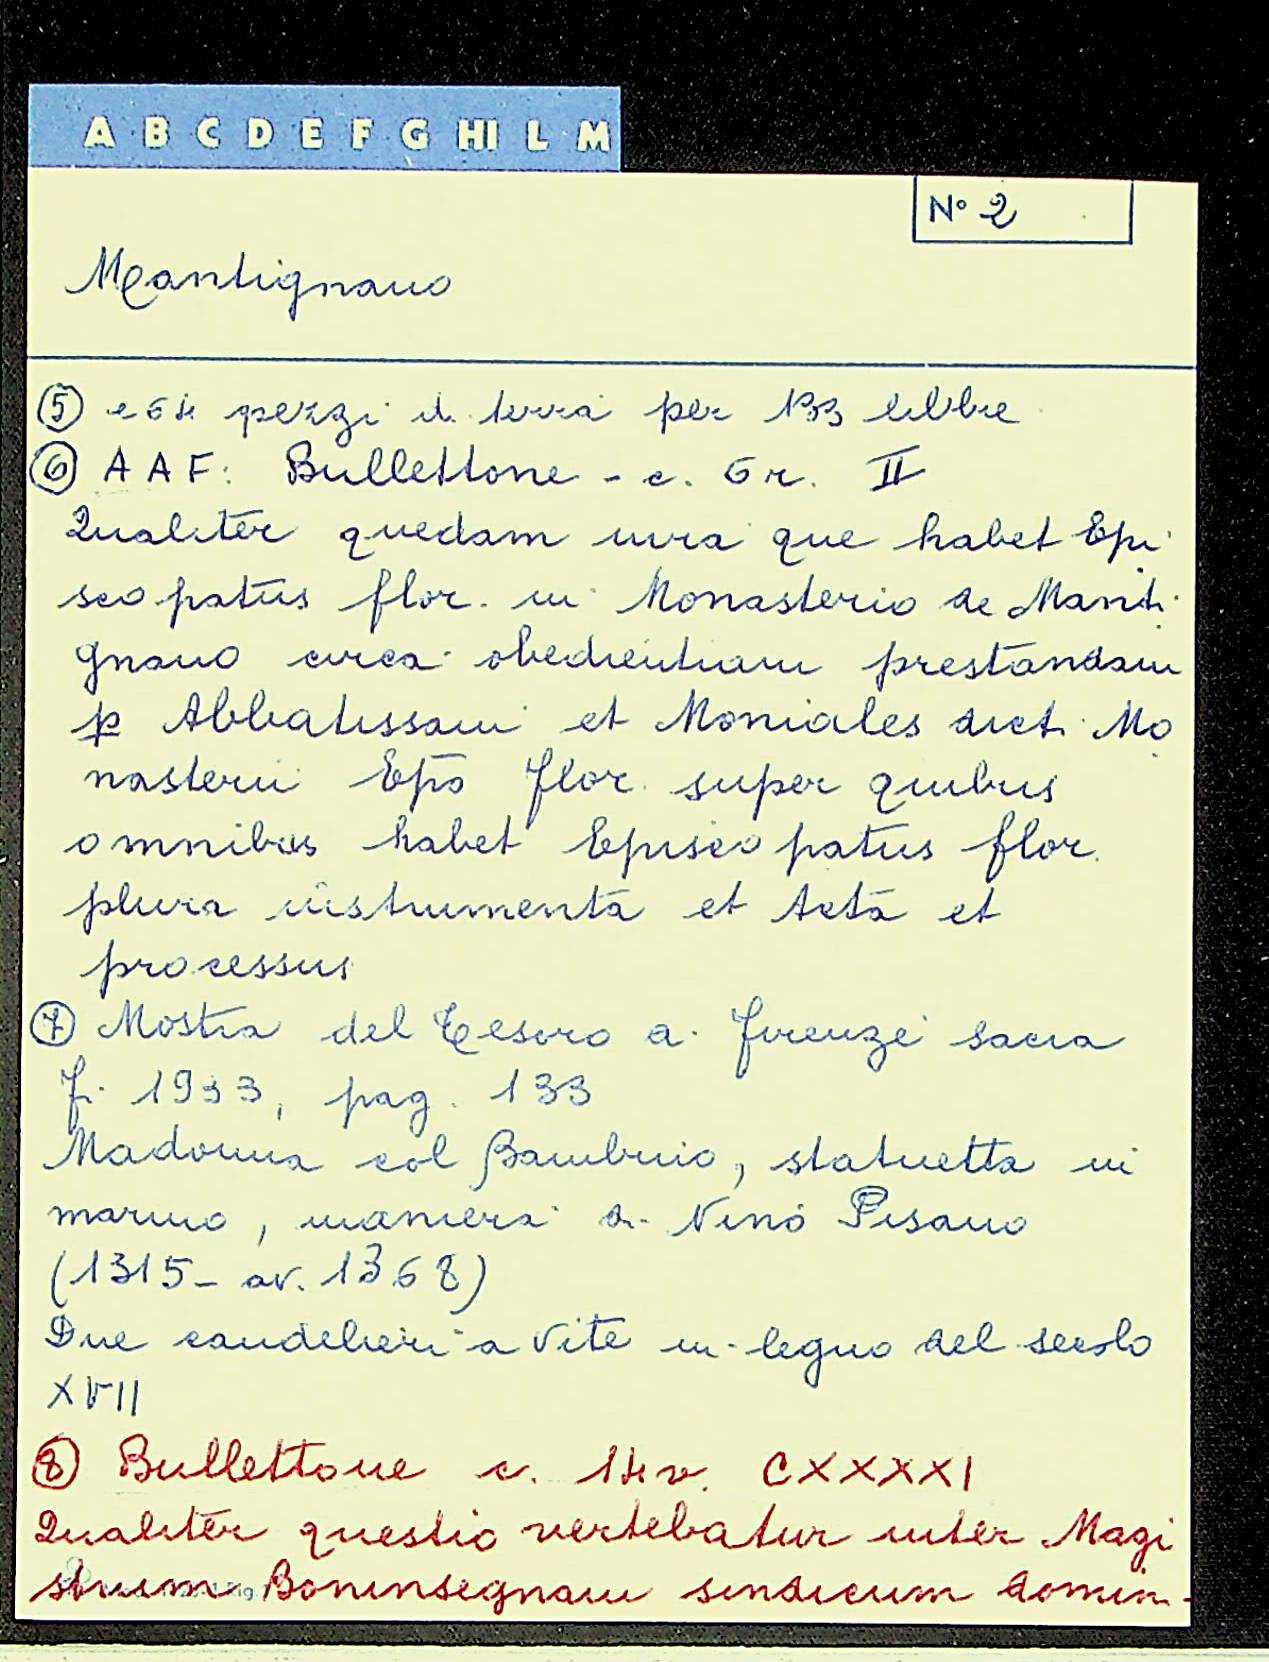 A B C D E F G HI L M
N° 2
Mantignano
⑤ e 64 pezzi di terra per 133 libbre
⑥ AAF: Bullettone - c. 6 r. II
Qualiter quedam iura que habet Epi
scopatus flor. in Monasterio de Manti
gnano circa obedientiam prestandam
p Abbatissam et Moniales dicti Mo
nasterii Epō flor. super quibus
omnibus habet Episcopatus flor.
plura instrumenta et acta et
processus
⑦ Mostra del Tesoro di Firenze sacra
F. 1933, pag. 133
Madonna col Bambino, statuetta in
marmo, maniera di Nino Pisano
(1315 - av. 1368)
Due candelieri a vite in legno del secolo
XVII
⑧ Bullettone c. 14 v. CXXXXI
Qualiter questio vertebatur inter Magi
strum Boninsegnam sindicum domin-